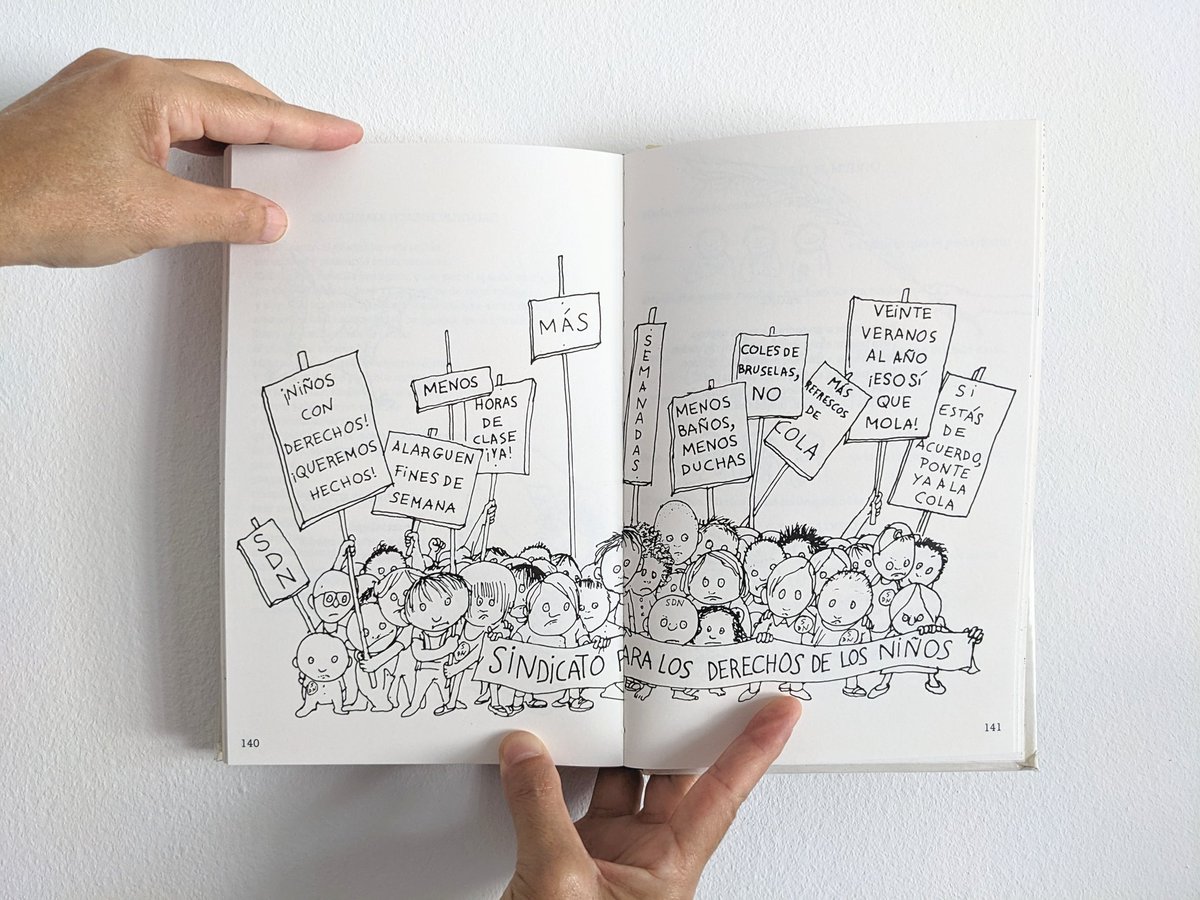 ¡NIÑOS
CON
DERECHOS!
¡QUEREMOS
HECHOS!
SDN
MENOS
HORAS
DE
CLASE
¡YA!
ALARGUEN
FINES DE
SEMANA
MÁS
SEMANADAS
MENOS
BAÑOS,
MENOS
DUCHAS
COLES DE
BRUSELAS,
NO
MÁS
REFRESCOS
DE
COLA
VEINTE
VERANOS
AL AÑO
¡ESO SÍ
QUE
MOLA!
SI
ESTÁS
DE
ACUERDO,
PONTE
YA A LA
COLA
SDN
SINDICATO PARA LOS DERECHOS DE LOS NIÑOS
140
141